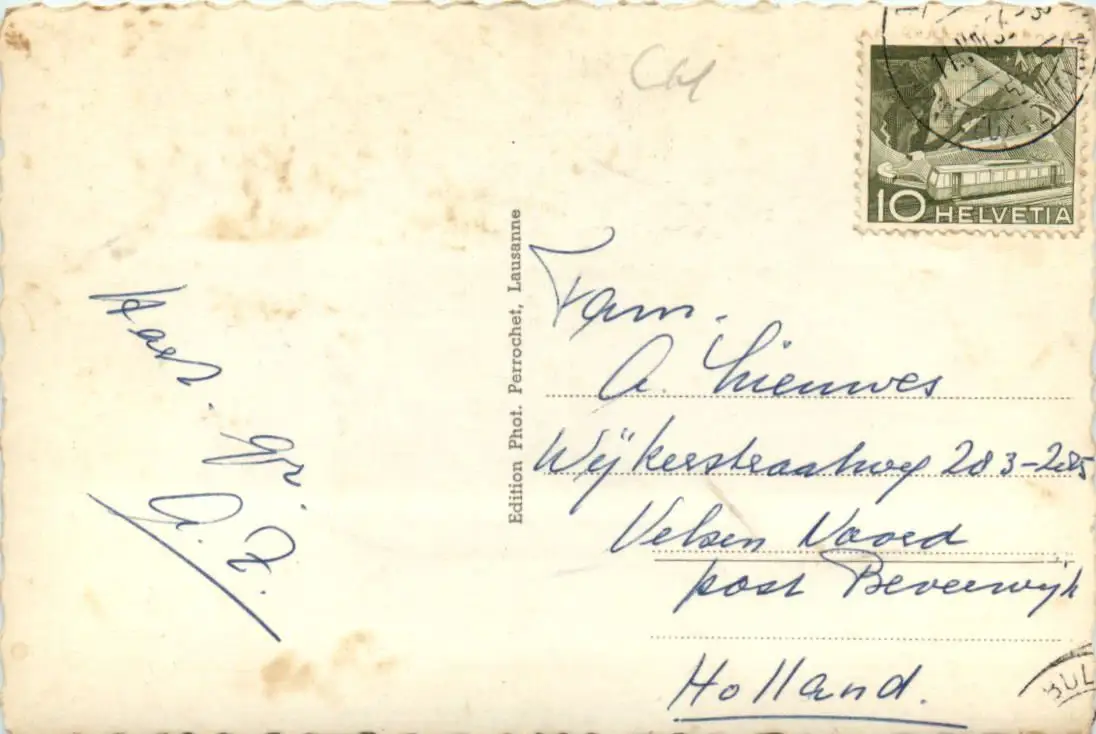 CH
10 HELVETIA
Edition Phot. Perrochet, Lausanne
Hart. gr.
A. Z.
Fam.
A. Lieuwes
Wijkerstraatweg 203-205
Velsen Noord
post Beverwijk
Holland.
BUL